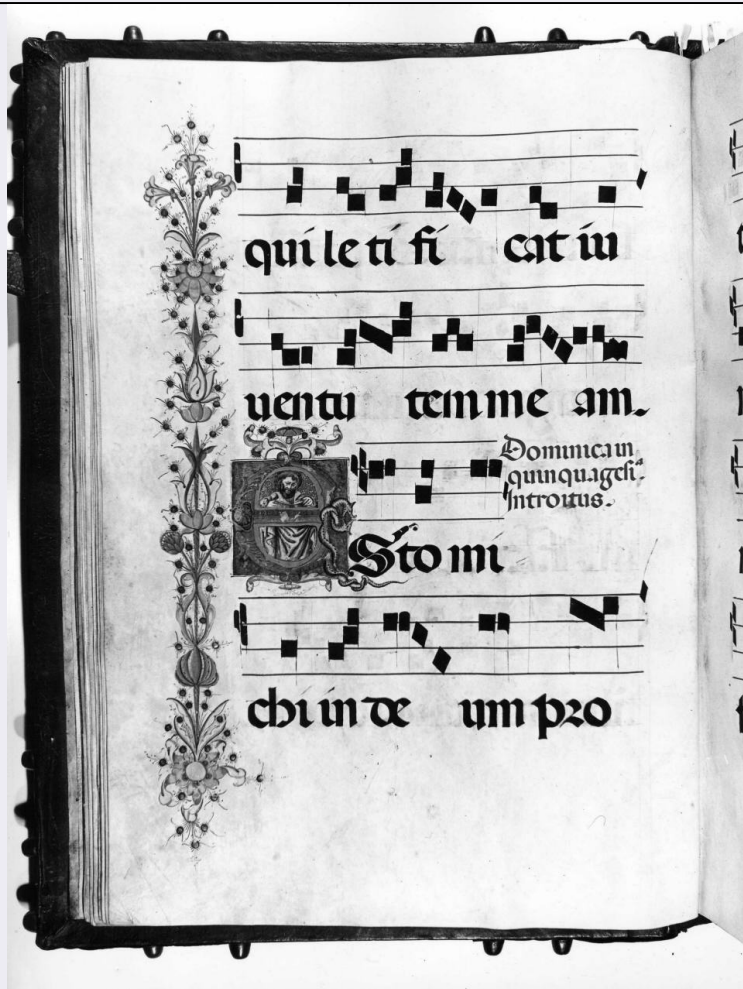 qui le ti fi cat iu
uentu tem me am.
Dominica in
quinquagesi.ª
Introitus.
ESto mi
chi in de um pro